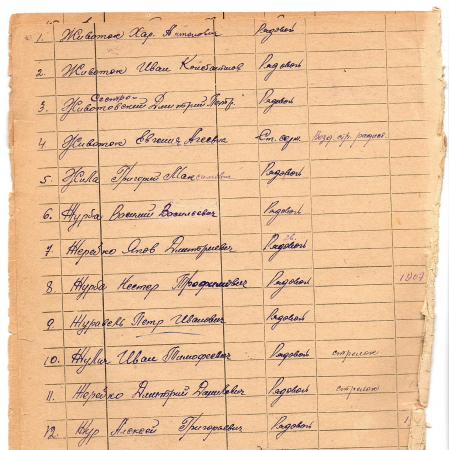 1. Животок Хар. Антонович Рядовой
2. Животок Иван Константинов Рядовой
3. Животовский Дмитрий Петр. Рядовой
4 Животок Евгения Агеевна Ст. серж. Возд. стр. радист.
5. Жила Григорий Максимович Рядовой
6. Журба Василий Васильевич Рядовой
7 Жерейко Яков Дмитриевич Рядовой
8 Журба Нестер Трофимович Рядовой 1907
9. Журавель Петр Иванович Рядовой
10. Иван Тимофеевич Рядовой стрелок
11. Жерейко Дмитрий Данилович Рядовой стрелок
12. Жур Алексей Григорьевич Рядовой